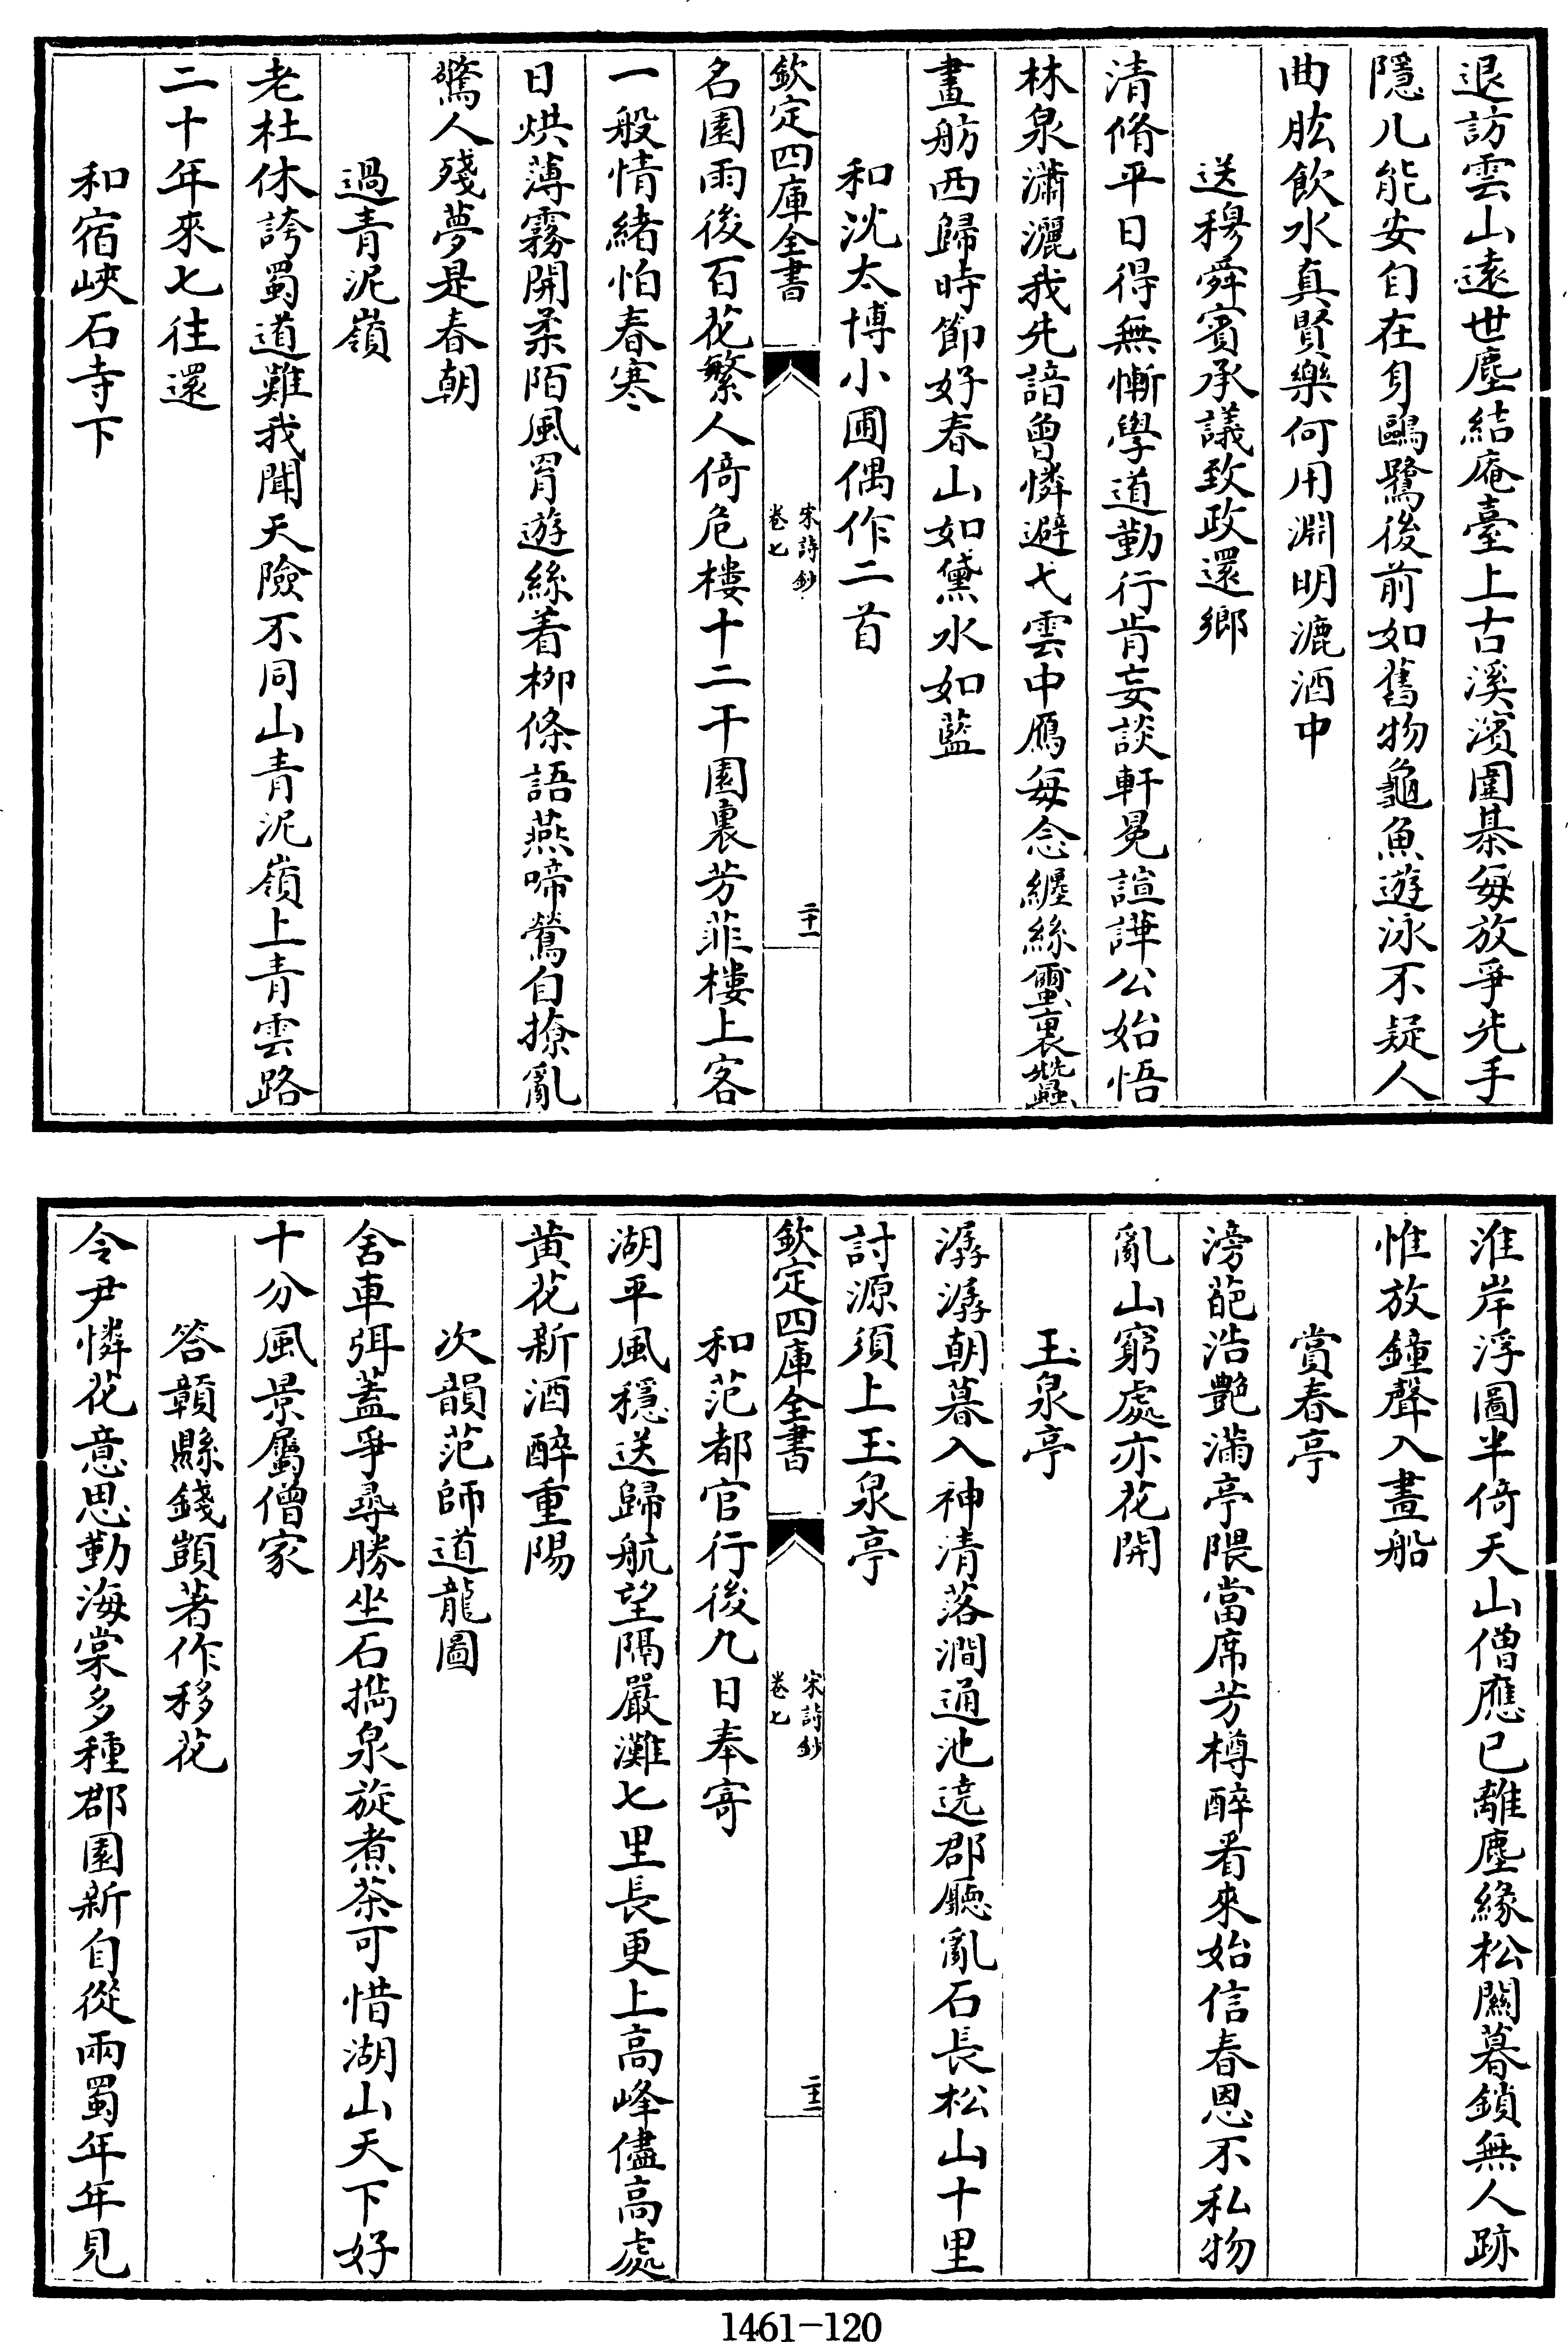 退訪雲山遠世塵結庵臺上古溪濱圍棊每放爭先手
隱几能安自在身鷗鷺後前如舊物龜魚遊泳不疑人
曲肱飲水真賢樂何用淵明漉酒巾
送穆舜賓承議致政還鄉
清脩平日得無慚學道勤行肯妄談軒冕諠譁公始悟
林泉瀟灑我先諳曾憐避弋雲中鴈每念纏絲璽裏蠶
畫舫西歸時節好春山如黛水如藍
和沈太博小圃偶作二首
欽定四庫全書
宋詩鈔
卷七
二十一
名園雨後百花繁人倚危樓十二干園裏芳菲樓上客
一般情緒怕春寒
日烘薄霧開柔陌風罥遊絲着柳條語燕啼鶯自撩亂
驚人殘夢是春朝
過青泥嶺
老杜休誇蜀道難我聞天險不同山青泥嶺上青雲路
二十年來七往還
和宿峽石寺下
淮岸浮圖半倚天山僧應已離塵緣松關暮鎖無人跡
惟放鐘聲入畫船
賞春亭
滂葩浩艷滿亭隈當席芳樽醉看來始信春恩不私物
亂山窮處亦花開
玉泉亭
潺潺朝暮入神清落澗通池遶郡廳亂石長松山十里
討源須上玉泉亭
欽定四庫全書
宋詩鈔
卷七
二十二
和范都官行後九日奉寄
湖平風穩送歸航望隔嚴灘七里長更上高峰儘高處
黃花新酒醉重陽
次韻范師道龍圖
舍車弭蓋爭尋勝坐石擕泉旋煮茶可惜湖山天下好
十分風景屬僧家
答贛縣錢顗著作移花
令尹憐花意思勤海棠多種郡園新自從兩蜀年年見
1461-120